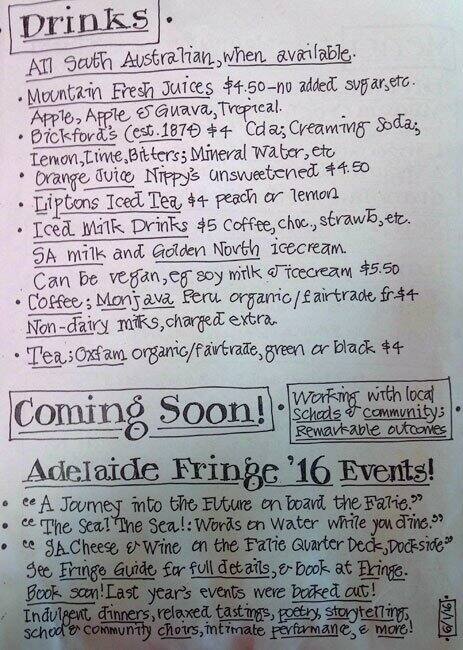 Drinks
All South Australian, when available.
• Mountain Fresh Juices $4.50 - no added sugar, etc.
Apple, Apple & Guava, Tropical.
• Bickford's (est. 1874) $4 Cola; Creaming Soda;
Lemon, Lime, Bitters; Mineral Water, etc
• Orange Juice Nippy's unsweetened $4.50
• Liptons Iced Tea $4 peach or lemon
• Iced Milk Drinks $5 Coffee, choc., strawb, etc.
SA milk and Golden North icecream.
Can be vegan, eg soy milk & icecream $5.50
• Coffee; Monjava Peru organic/fairtrade fr $4
Non-dairy milks, charged extra.
• Tea; Oxfam organic/fairtrade, green or black $4
Coming Soon!
• Working with local
schools & community;
Remarkable outcomes
Adelaide Fringe '16 Events!
• "A Journey into the Future on board the Falie."
• "The Sea! The Sea!: Words on Water while you dine."
• "SA Cheese & Wine on the Falie Quarter Deck, Dockside"
See Fringe Guide for full details, & book at Fringe.
Book soon! Last year's events were booked out!
Indulgent dinners, relaxed tastings, poetry, storytelling,
school & community choirs, intimate performance, & more!
6/1/16